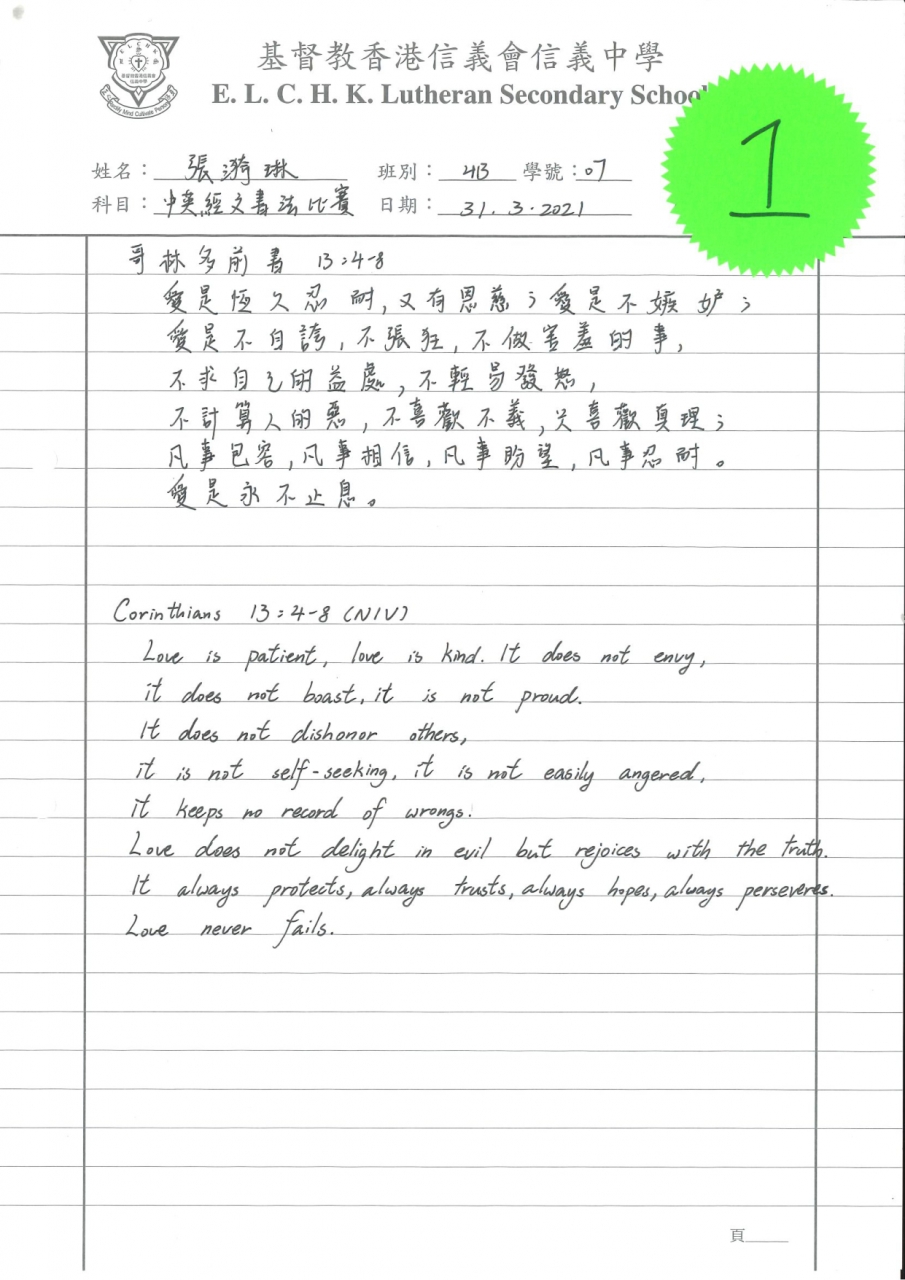 基督教香港信義會信義中學
E. L. C. H. K. Lutheran Secondary School
1
姓名：張漪琳 班別：4B 學號：07
科目：中英經文書法比賽 日期：31.3.2021
哥林多前書 13:4-8
愛是恆久忍耐,又有恩慈；愛是不嫉妒；
愛是不自誇,不張狂,不做害羞的事,
不求自己的益處,不輕易發怒,
不計算人的惡,不喜歡不義,只喜歡真理；
凡事包容,凡事相信,凡事盼望,凡事忍耐。
愛是永不止息。
Corinthians 13:4-8 (NIV)
Love is patient, love is kind. It does not envy,
it does not boast, it is not proud.
It does not dishonor others,
it is not self-seeking, it is not easily angered,
it keeps no record of wrongs.
Love does not delight in evil but rejoices with the truth.
It always protects, always trusts, always hopes, always perseveres.
Love never fails.
頁